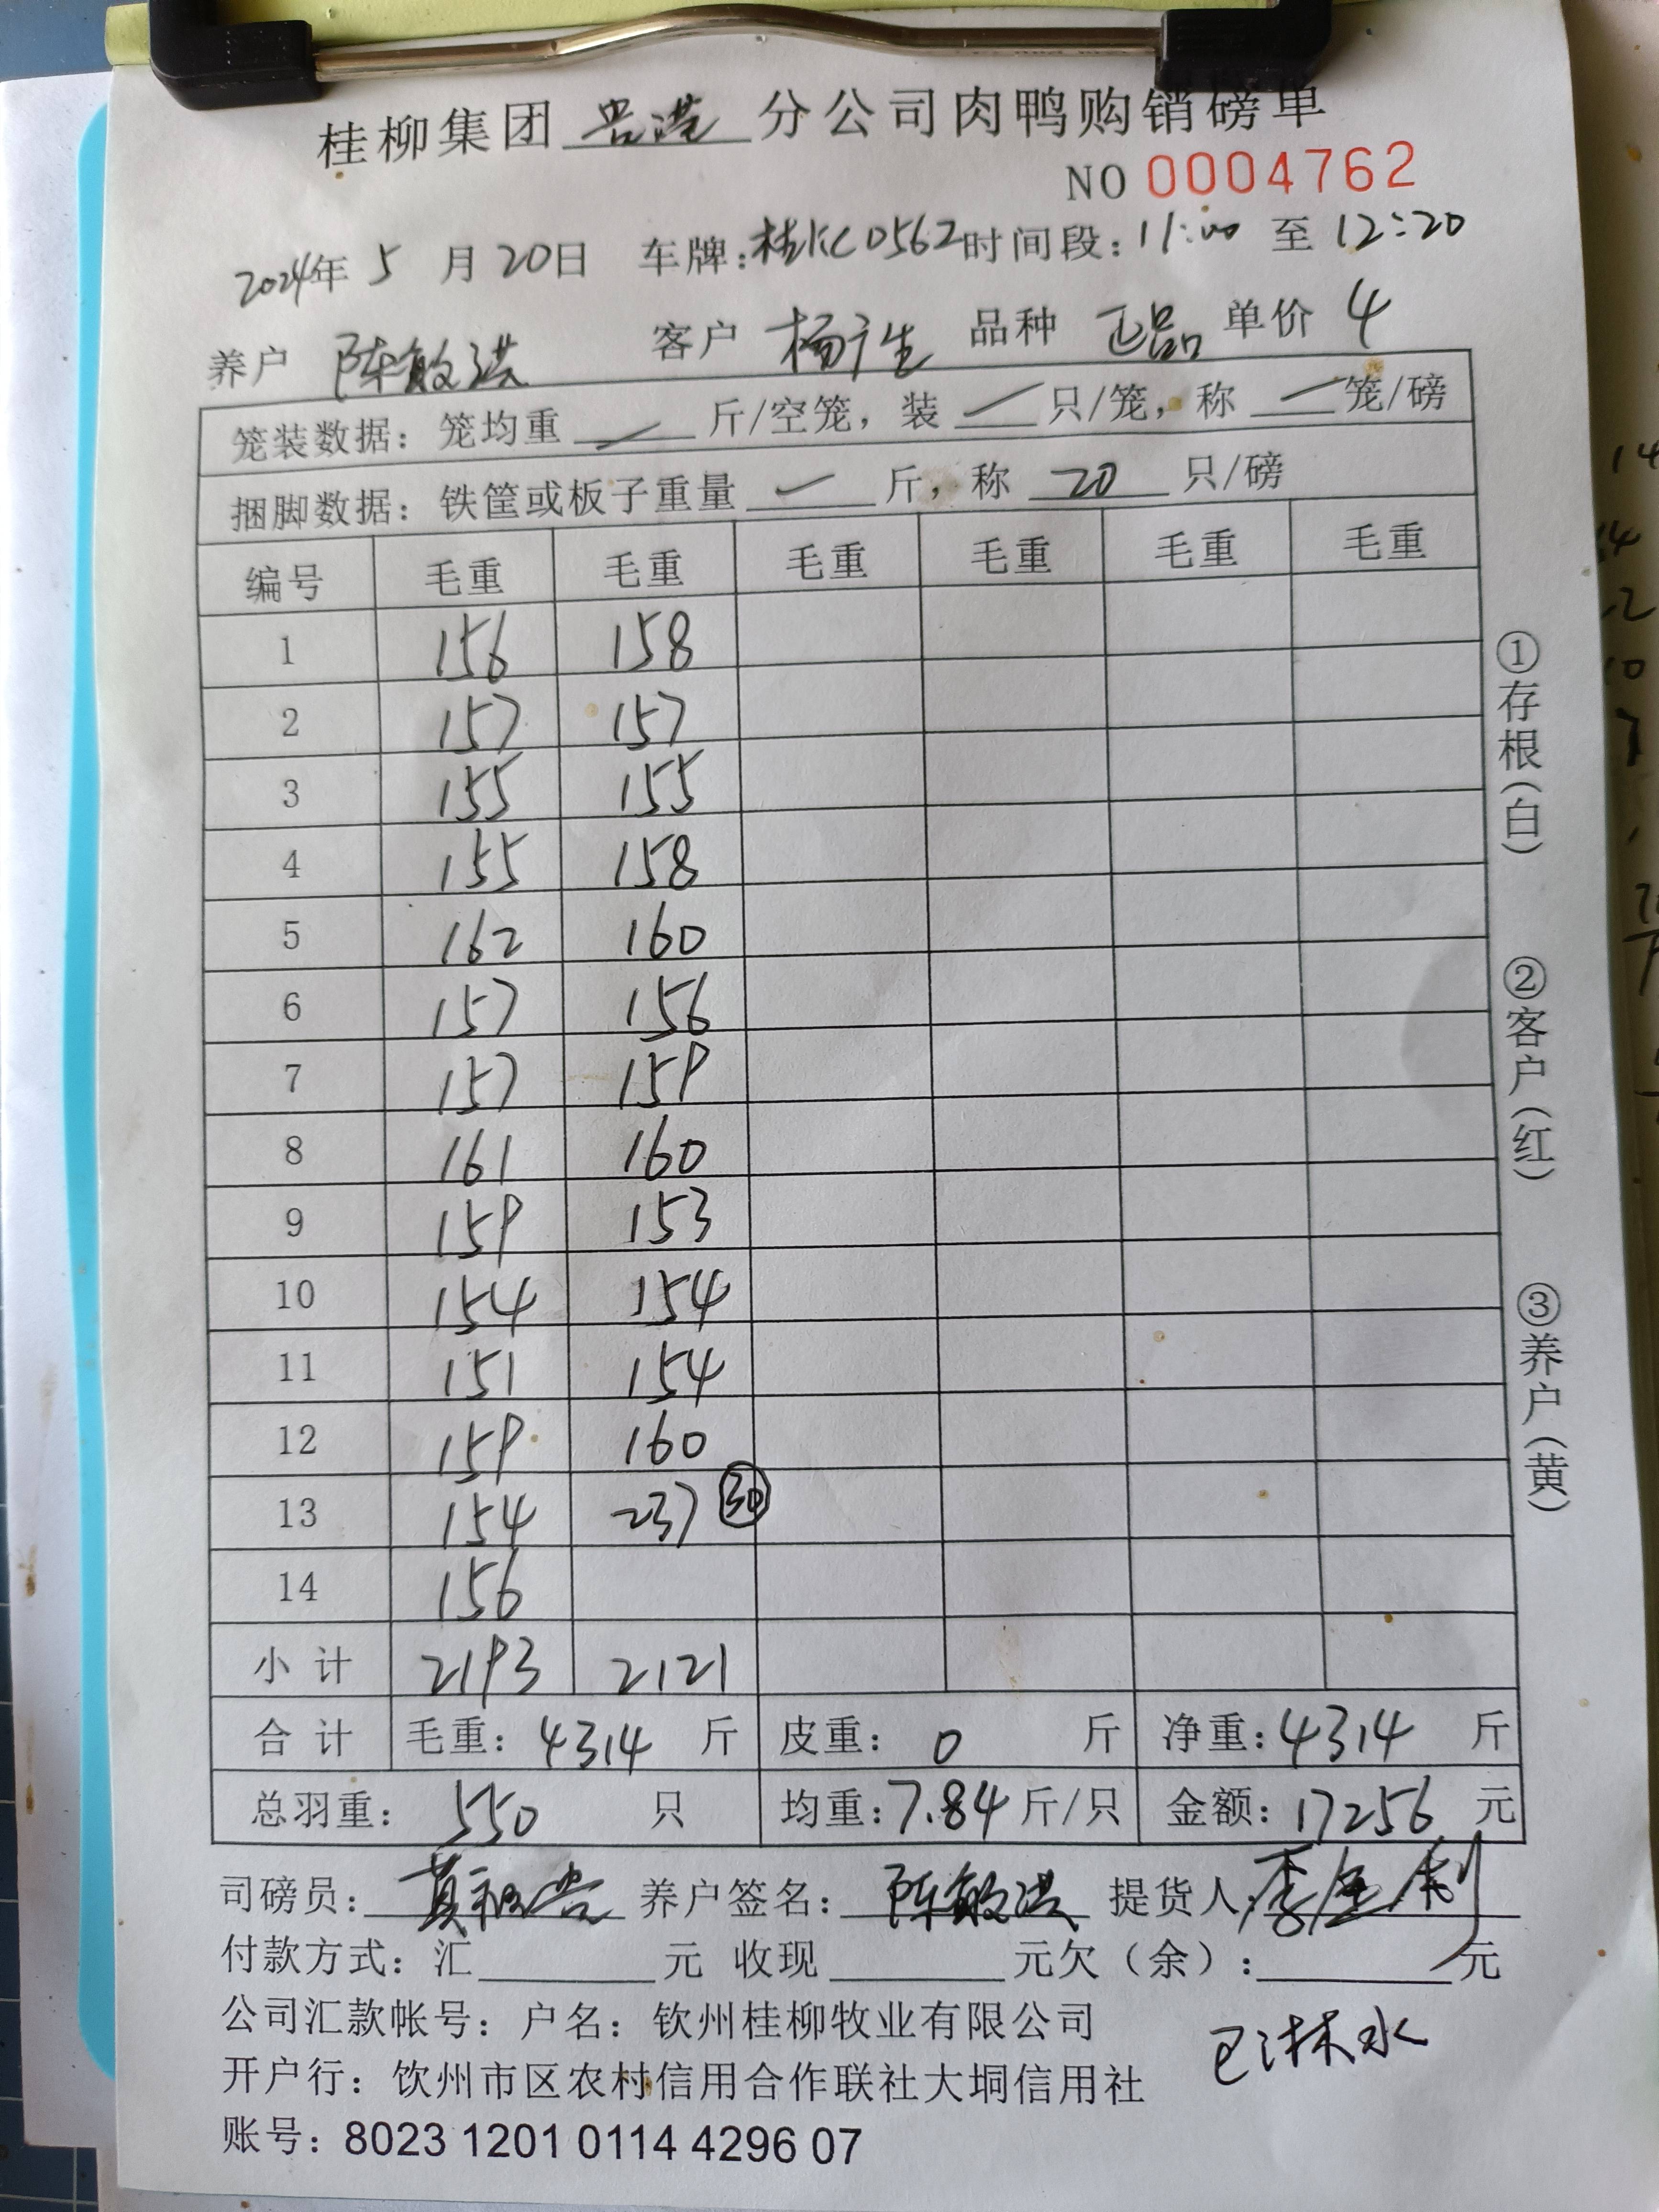 桂柳集团 贵港 分公司肉鸭购销磅单
NO 0004762
2024年 5 月 20日 车牌:桂KC0562 时间段:11:00 至 12:20
养户 陈敏洪 客户 杨广生 品种 正品 单价 4
笼装数据:笼均重 — 斤/空笼,装 — 只/笼,称 — 笼/磅
捆脚数据:铁筐或板子重量 — 斤,称 20 只/磅
编号 毛重 毛重 毛重 毛重 毛重 毛重
1 156 158
2 157 157
3 155 155
4 155 158
5 162 160
6 157 156
7 157 159
8 161 160
9 159 153
10 154 154
11 151 154
12 159 160
13 154 237 30
14 156
小计 2193 2121
合计 毛重:4314 斤 皮重:0 斤 净重:4314 斤
总羽重:550 只 均重:7.84 斤/只 金额:17256 元
司磅员: 养户签名:陈敏洪 提货人:李
付款方式:汇 元 收现 元欠(余): 元
公司汇款帐号:户名:钦州桂柳牧业有限公司
已淋水
开户行:钦州市区农村信用合作联社大垌信用社
账号:8023 1201 0114 4296 07
①存根(白) ②客户(红) ③养户(黄)